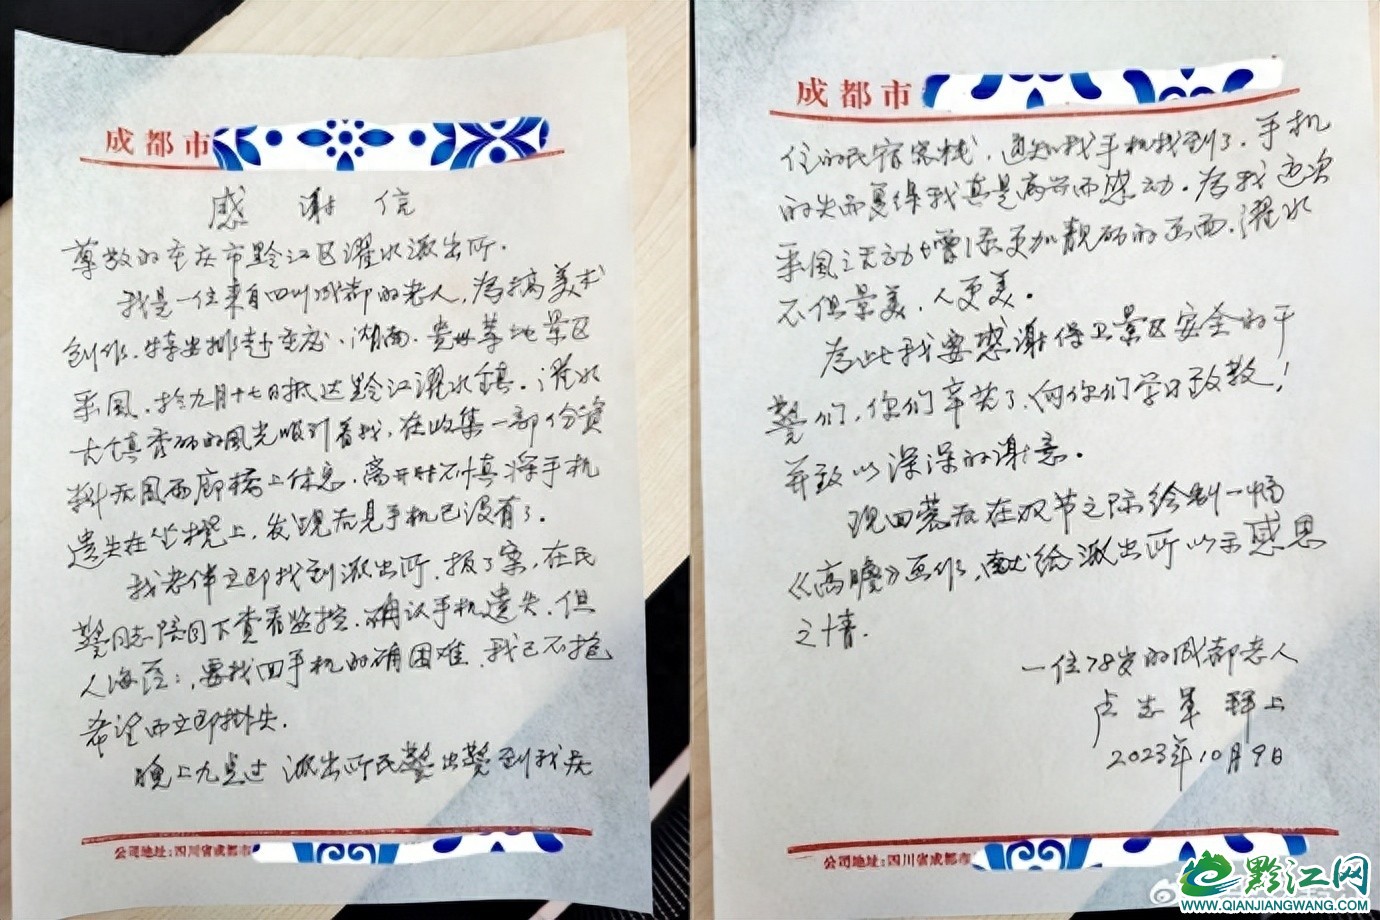 成都市
感谢信
尊敬的重庆市黔江区濯水派出所.
我是一位来自四川成都的老人,为搞美术
创作,特安排赴重庆、湖南、贵州等地景区
采风,於九月十七日抵达黔江濯水镇。濯水
古镇秀丽的风光吸引着我,在收集一部份资
料后风雨廊桥上休息,离开时不慎将手机
遗失在坐櫈上,发现后见手机已没有了。
我老伴立即找到派出所,报了案,在民
警同志陪同下查看监控,确认手机遗失,但
人海茫茫,要找回手机的确困难,我已不抱
希望而立即掛失.
晚上九点过派出所民警出警到我
公司地址:四川省成都市
成都市
住的民宿客栈,通知我手机找到了,手机
的失而复得我真是高兴而感动。为我这次
采风之活动增添更加靓丽的画面,濯水
不但景美,人更美。
为此我要感谢保卫景区安全的干
警们,你们辛苦了,向你们学习致敬!
并致以深深的谢意。
现回蓉后在双节之际绘制一幅
《高瞻》画作,献给派出所以示感恩
之情.
一位78岁的成都老人
卢志军 拜上
2023年10月9日
公司地址:四川省成都市
黔江网
WWW.QIANJIANGWANG.COM